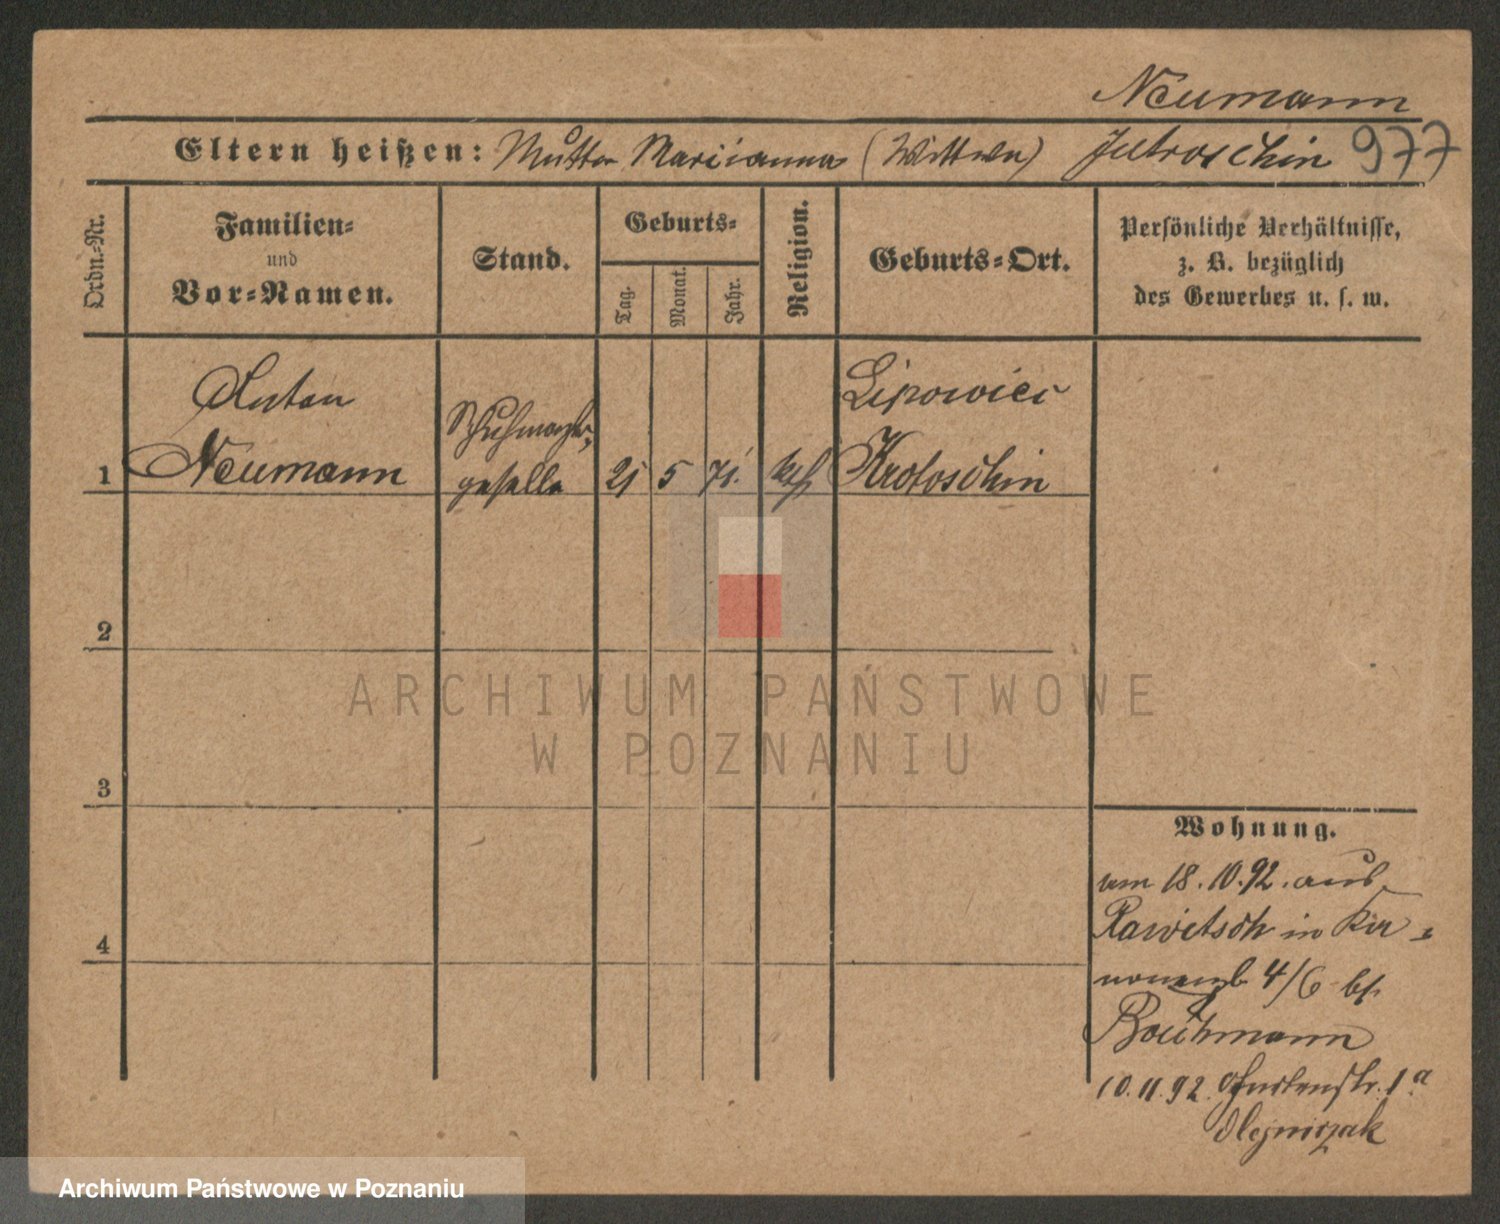 Neumann
Eltern heißen: Mutter Marianna (Wittwe) Jutroschin 977
Ordn.-Nr.
Familien-
und
Vor-Namen.
Stand.
Geburts-
Tag.
Monat.
Jahr.
Religion.
Geburts-Ort.
Persönliche Verhältnisse,
z. B. bezüglich
des Gewerbes u. s. w.
Anton
Neumann
Schuhmacher-
geselle
21 5 71. kath
Lipowiec
Krotoschin
1
2
3
4
ARCHIWUM PAŃSTWOWE
W POZNANIU
Wohnung.
am 18.10.92. aus
Rawitsch in Ka-
nonenpl 4/6 bei
10.11.92. Gartenstr. 1a
Olejniczak
Archiwum Państwowe w Poznaniu